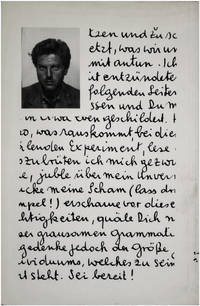 tzen und zu sc
etzt, was wir un
mit antun. Ich
it entzündete
folgenden Seiten
ssen und Du m
geschildert.
wo, was rauskommt bei die
ilenden Experiment, lese
szubrüten ich mich gezwu
e, juble über mein unver
icke meine Scham (lass dr
mpel!) erschaue vor diese
htigkeiten, quäle Dich n
ser grausamen Grammati
gedenke jedoch der Größe
ividuums, welches zu sein
st steht. Sei bereit!